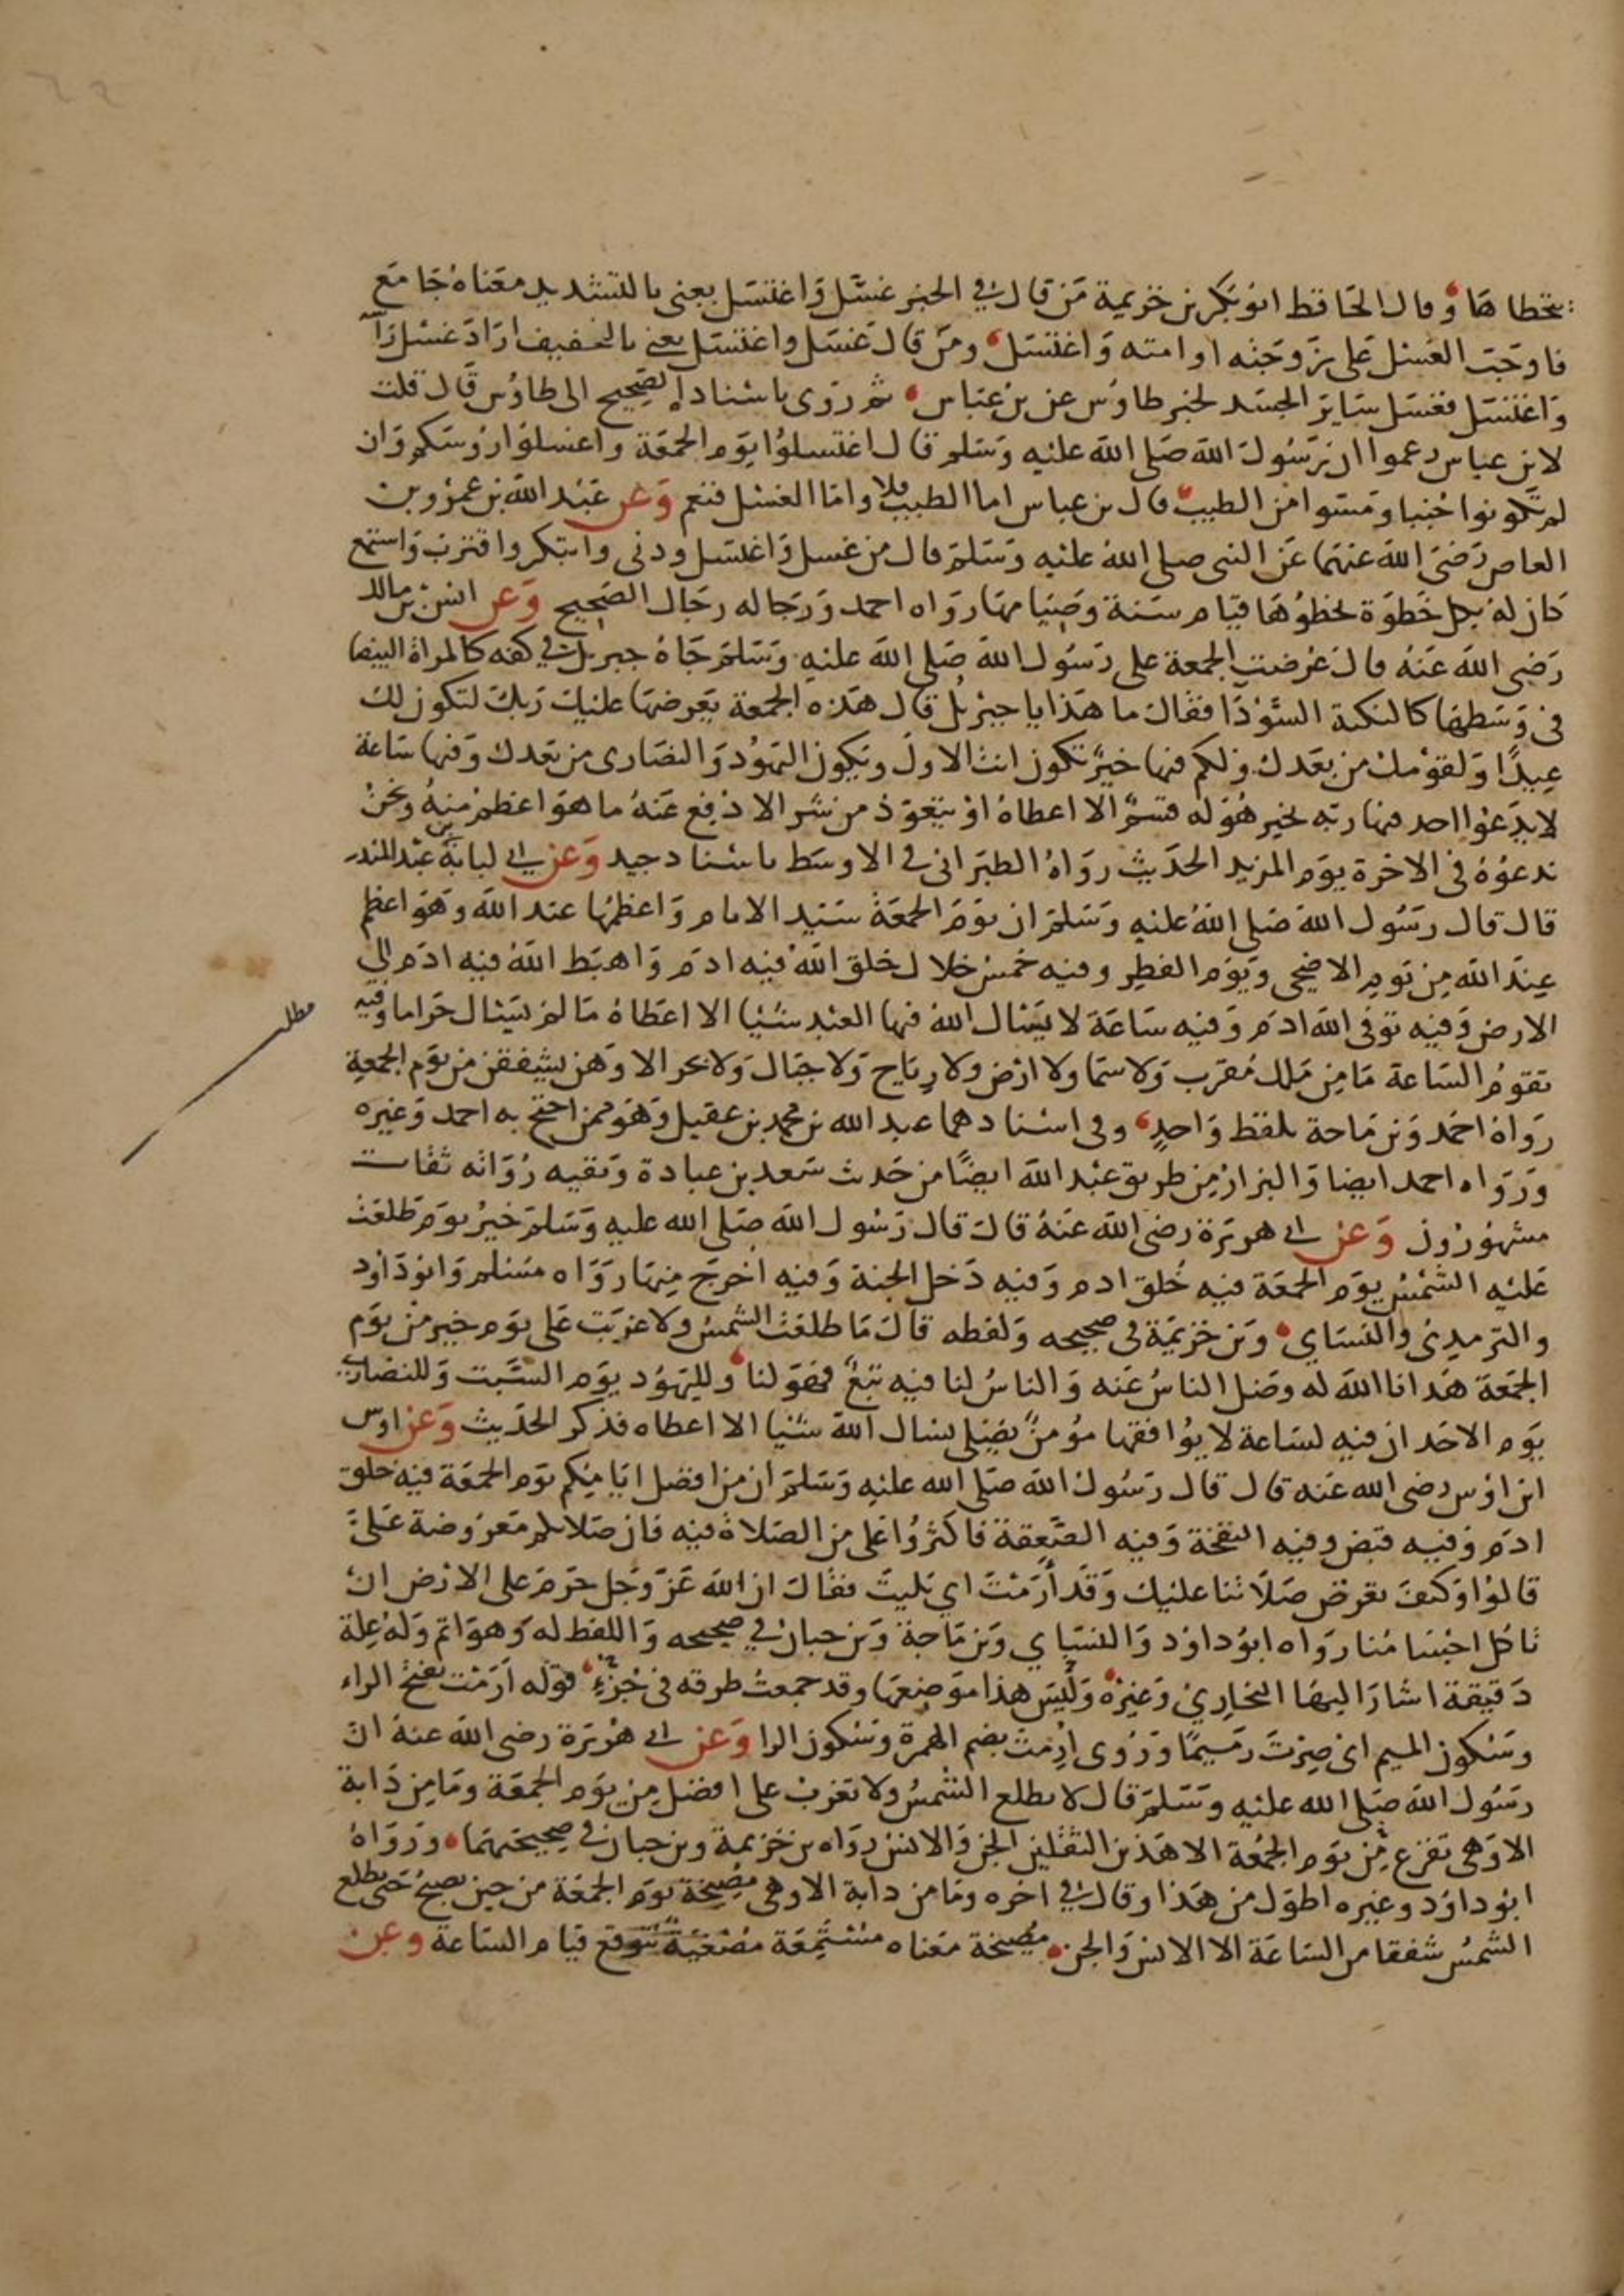 يخطاها وقال الحافظ ابو بكر بن خزيمة من قال في الخبر غسّل واغتسل يعني بالتشديد معناه جامع
فاوجبت الغسل على زوجته او امته واغتسل ومن قال غسل واغتسل يعني بالتخفيف اراد غسل راسه
واغتسل فغسل ساير الجسد لخبر طاوس عن بن عباس ثم روى باسناد الصحيح الى طاوس قال قلت
لابن عباس زعموا ان رسول الله صلى الله عليه وسلم قال اغتسلوا يوم الجمعة واغسلوا روسكم وان
لم تكونوا جنبا ومسوا من الطيب قال بن عباس اما الطيب فلا واما الغسل فنعم وعن عبد الله بن عمرو بن
العاص رضي الله عنهما عن النبي صلى الله عليه وسلم قال من غسل واغتسل ودنى وابتكر واقترب واستمع
كان له بكل خطوة يخطوها قيام سنة وصيامها رواه احمد ورجاله رجال الصحيح وعن انس بن مالك
رضي الله عنه قال عرضت الجمعة على رسول الله صلى الله عليه وسلم جاه جبريل في كفه كالمراة البيضا
في وسطها كالنكتة السودا فقال ما هذا يا جبريل قال هذه الجمعة يعرضها عليك ربك لتكون لك
عيدا ولقومك من بعدك ولكم فيها خير تكون انت الاول ويكون اليهود والنصارى من بعدك وفيها ساعة
لا يدعوا احد فيها ربه بخير هو له قسم الا اعطاه او يتعوذ من شر الا دفع عنه ما هو اعظم منه ونحن
ندعوه في الاخرة يوم المزيد الحديث رواه الطبراني في الاوسط باسناد جيد وعن ابي لبابة بن عبد المنذر
قال قال رسول الله صلى الله عليه وسلم ان يوم الجمعة سيد الايام واعظمها عند الله وهو اعظم
عند الله من يوم الاضحى ويوم الفطر وفيه خمس خلال خلق الله فيه ادم واهبط الله فيه ادم الى
الارض وفيه توفى الله ادم وفيه ساعة لا يسال الله فيها العبد شيئا الا اعطاه ما لم يسال حراما وفيه
مطلب
تقوم الساعة ما من ملك مقرب ولا سما ولا ارض ولا رياح ولا جبال ولا بحر الا وهن يشفقن من يوم الجمعة
رواه احمد وبن ماجة بلفظ واحد وفي اسنادهما عبد الله بن محمد بن عقيل وهو ممن احتج به احمد وغيره
ورواه احمد ايضا والبزار من طريق عبد الله ايضًا من حديث سعد بن عبادة وبقيه رواته ثقات
مشهورون وعن ابي هريرة رضي الله عنه قال قال رسول الله صلى الله عليه وسلم خير يوم طلعت
عليه الشمس يوم الجمعة فيه خلق ادم وفيه دخل الجنة وفيه اخرج منها رواه مسلم وابو داود
والترمدي والنساي وبن خزيمة في صحيحه ولفظه قال ما طلعت الشمس ولا غربت على يوم خير من يوم
الجمعة هدانا الله له وضل الناس عنه والناس لنا فيه تبع فهو لنا ولليهود يوم السبت وللنصارى
يوم الاحد ان فيه لساعة لا يوافقها مؤمن يصلي يسال الله شيئا الا اعطاه فذكر الحديث وعن اوس
ابن اوس رضي الله عنه قال قال رسول الله صلى الله عليه وسلم ان من افضل ايامكم يوم الجمعة فيه خلق
ادم وفيه قبض وفيه النفخة وفيه الصعقة فاكثروا على من الصلاة فيه فان صلاتكم معروضة علي
قالوا وكيف تعرض صلاتنا عليك وقد أرمت اي بليت فقال ان الله عز وجل حرم على الارض ان
تاكل اجسامنا رواه ابو داود والنساي وبن ماجة وبن حبان في صحيحه واللفظ له وهو اتم وله علة
دقيقة اشار اليها البخاري وغيره وليس هذا موضعها وقد جمعت طرقه في جزء قوله ارمت بفتح الراء
وسكون الميم اي صرت رميمًا وروى ارمت بضم الهمزة وسكون الرا وعن ابي هريرة رضي الله عنه ان
رسول الله صلى الله عليه وسلم قال لا يطلع الشمس ولا تغرب على افضل من يوم الجمعة وما من دابة
الا وهي تفزع من يوم الجمعة الا هذين الثقلين الجن والانس رواه بن خزيمة وبن حبان في صحيحهما ورواه
ابو داود وغيره اطول من هذا وقال في اخره وما من دابة الا وهي مصيخة يوم الجمعة من حين تصبح حتى تطلع
الشمس شفقا من الساعة الا الانس والجن مصيخة معناه مستمعة مصغية تتوقع قيام الساعة وعن